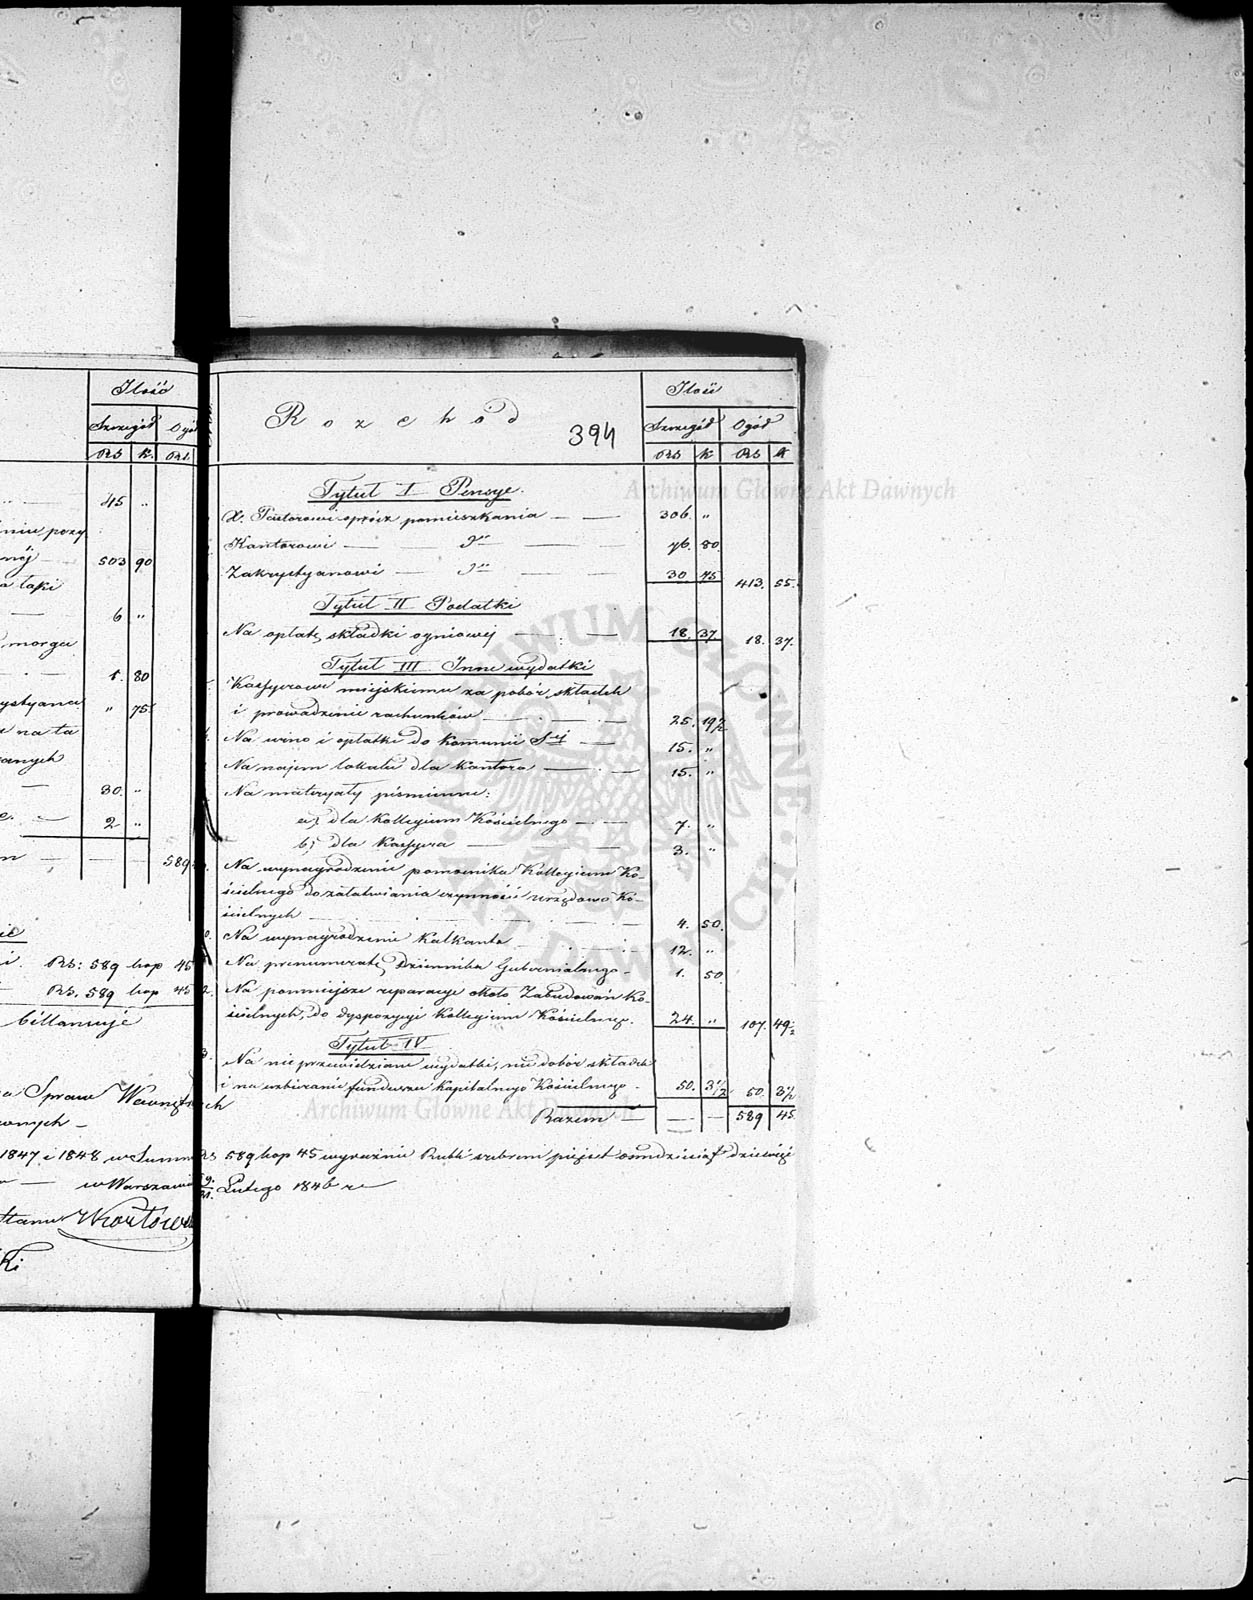 Ilość
Szczegół Ogół
Rs K. Rs.
45 "
503 90
a łąki
6 "
morga
1. 80
" 75
na ta
anych
30. "
2 "
589
Rs: 589 kop 45
Rs. 589 kop 45
billansuje
a Spraw Wewnętrznych
1847 i 1848 w Summie
w Warszawie
Rozchód
394
Ilość
Szczegół Ogół
Rs K Rs K
Tytuł I Pensye.
X. Pastorowi oprócz pomieszkania — — 306. "
Kantorowi — — dto — 76. 80.
Zakrystyanowi — dto — 30. 75 413. 55.
Tytuł II Podatki
Na opłatę składki ogniowej — — 18. 37. 18. 37.
Tytuł III Inne wydatki
Kassyerowi miejskiemu za pobór składek
i prowadzenie rachunków — — 25. 19½
Na wino i opłatki do Komunii Stej — 15. "
Na najem lokalu dla Kantora — — 15. "
Na materyały piśmienne:
a) dla Kollegium Kościelnego — — 7. "
b) dla Kassyera — — 3. "
Na wynagrodzenie pomocnika Kollegium Ko-
ścielnego do załatwiania czynności urzędowo Ko-
ścielnych — 4. 50.
Na wynagrodzenie Kalkanta — 12. "
Na prenumeratę Dziennika Gubernialnego - 1. 50
Na pomniejsze reparacye około Zabudowań Ko-
ścielnych, do dyspozycyi Kollegium Kościelnego. 24. " 107. 49½
Tytuł IV
Na nieprzewidziane wydatki, niedobór składek
i na uzbieranie funduszu Kapitalnego Kościelnego - 50. 3½ 50. 3½
Razem — — — 589 45
Rs 589 kop 45 wyraźnie Rubli srebrem pięćset ośmdziesiąt dziewięć
Lutego 1846 r
Archiwum Główne Akt Dawnych
Archiwum Główne Akt Dawnych
ARCHIWUM GŁÓWNE · AKT DAWNYCH ·